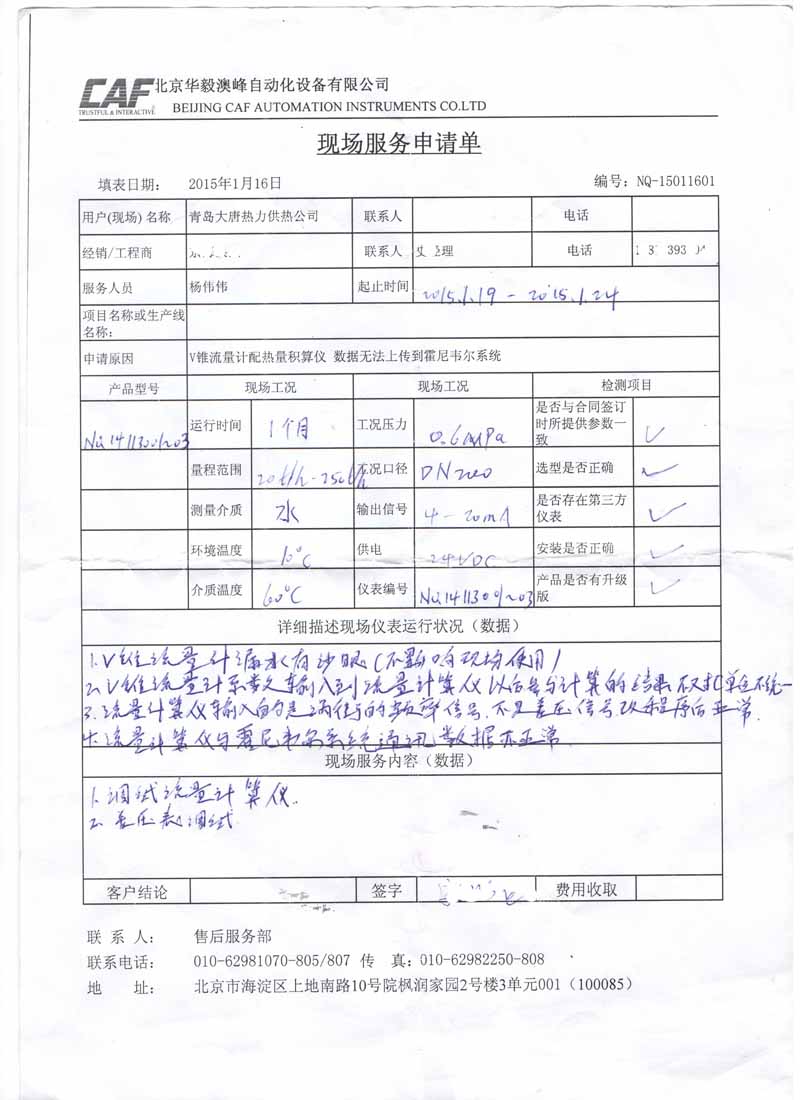 CAF 北京华毅澳峰自动化设备有限公司
TRUSTFUL & INTERACTIVE BEIJING CAF AUTOMATION INSTRUMENTS CO.LTD
现场服务申请单
填表日期： 2015年1月16日 编号：NQ-15011601
用户(现场)名称 青岛大唐热力供热公司 联系人 电话
经销/工程商 联系人 理 电话 393
服务人员 杨伟伟 起止时间 2015.1.19 - 2015.1.24
项目名称或生产线名称：
申请原因 V锥流量计配热量积算仪 数据无法上传到霍尼韦尔系统
产品型号 现场工况 现场工况 检测项目
No:14113001~03 运行时间 1个月 工况压力 0.6MPa 是否与合同签订时所提供参数一致 ✓
量程范围 20t/h-250t/h 工况口径 DN200 选型是否正确 ✓
测量介质 水 输出信号 4-20mA 是否存在第三方仪表 ✓
环境温度 10℃ 供电 24VDC 安装是否正确 ✓
介质温度 60℃ 仪表编号 No:14113001~03 产品是否有升级版 ✓
详细描述现场仪表运行状况（数据）
1. V锥流量计漏水有沙眼（不影响现场使用）
2. V锥流量计系数输入到流量计算仪以后参与计算的结果不对（单位不统一
3. 流量计算仪输入的是涡街的频率信号，不是差压信号 改程序后正常.
4. 流量计算仪与霍尼韦尔系统通讯数据亦正常
现场服务内容（数据）
1. 调试流量计算仪.
2. 差压表调试.
客户结论 签字 费用收取
联 系 人： 售后服务部
联系电话： 010-62981070-805/807 传 真：010-62982250-808
地 址： 北京市海淀区上地南路10号院枫润家园2号楼3单元001（100085）